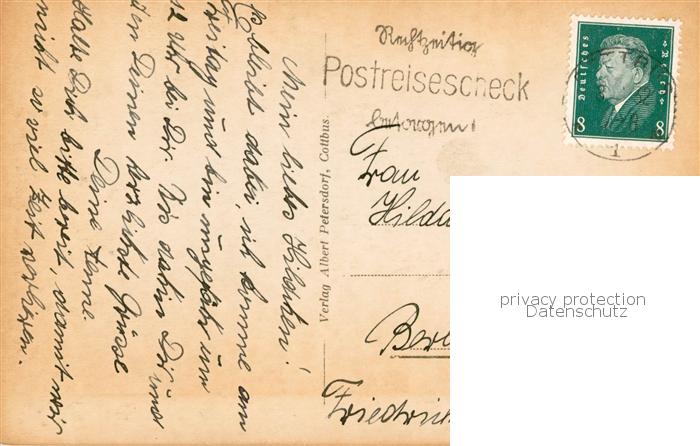 Mein liebes Hildchen!
Es bleibt dabei, ich komme am
Freitag und bin ungefähr um
12 Uhr bei Dir. Bis dahin Dir und
den Deinen herzliche Grüsse
Deine Irene.
Halte Dich bitte bereit, damit wir
nicht so viel Zeit verlieren.
Verlag Albert Petersdorf, Cottbus.
Rechtzeitig
Postreisescheck
besorgen!
Deutsches Reich
8 8
1
Frau
Hilda
Ber
Friedrich
privacy protection
Datenschutz